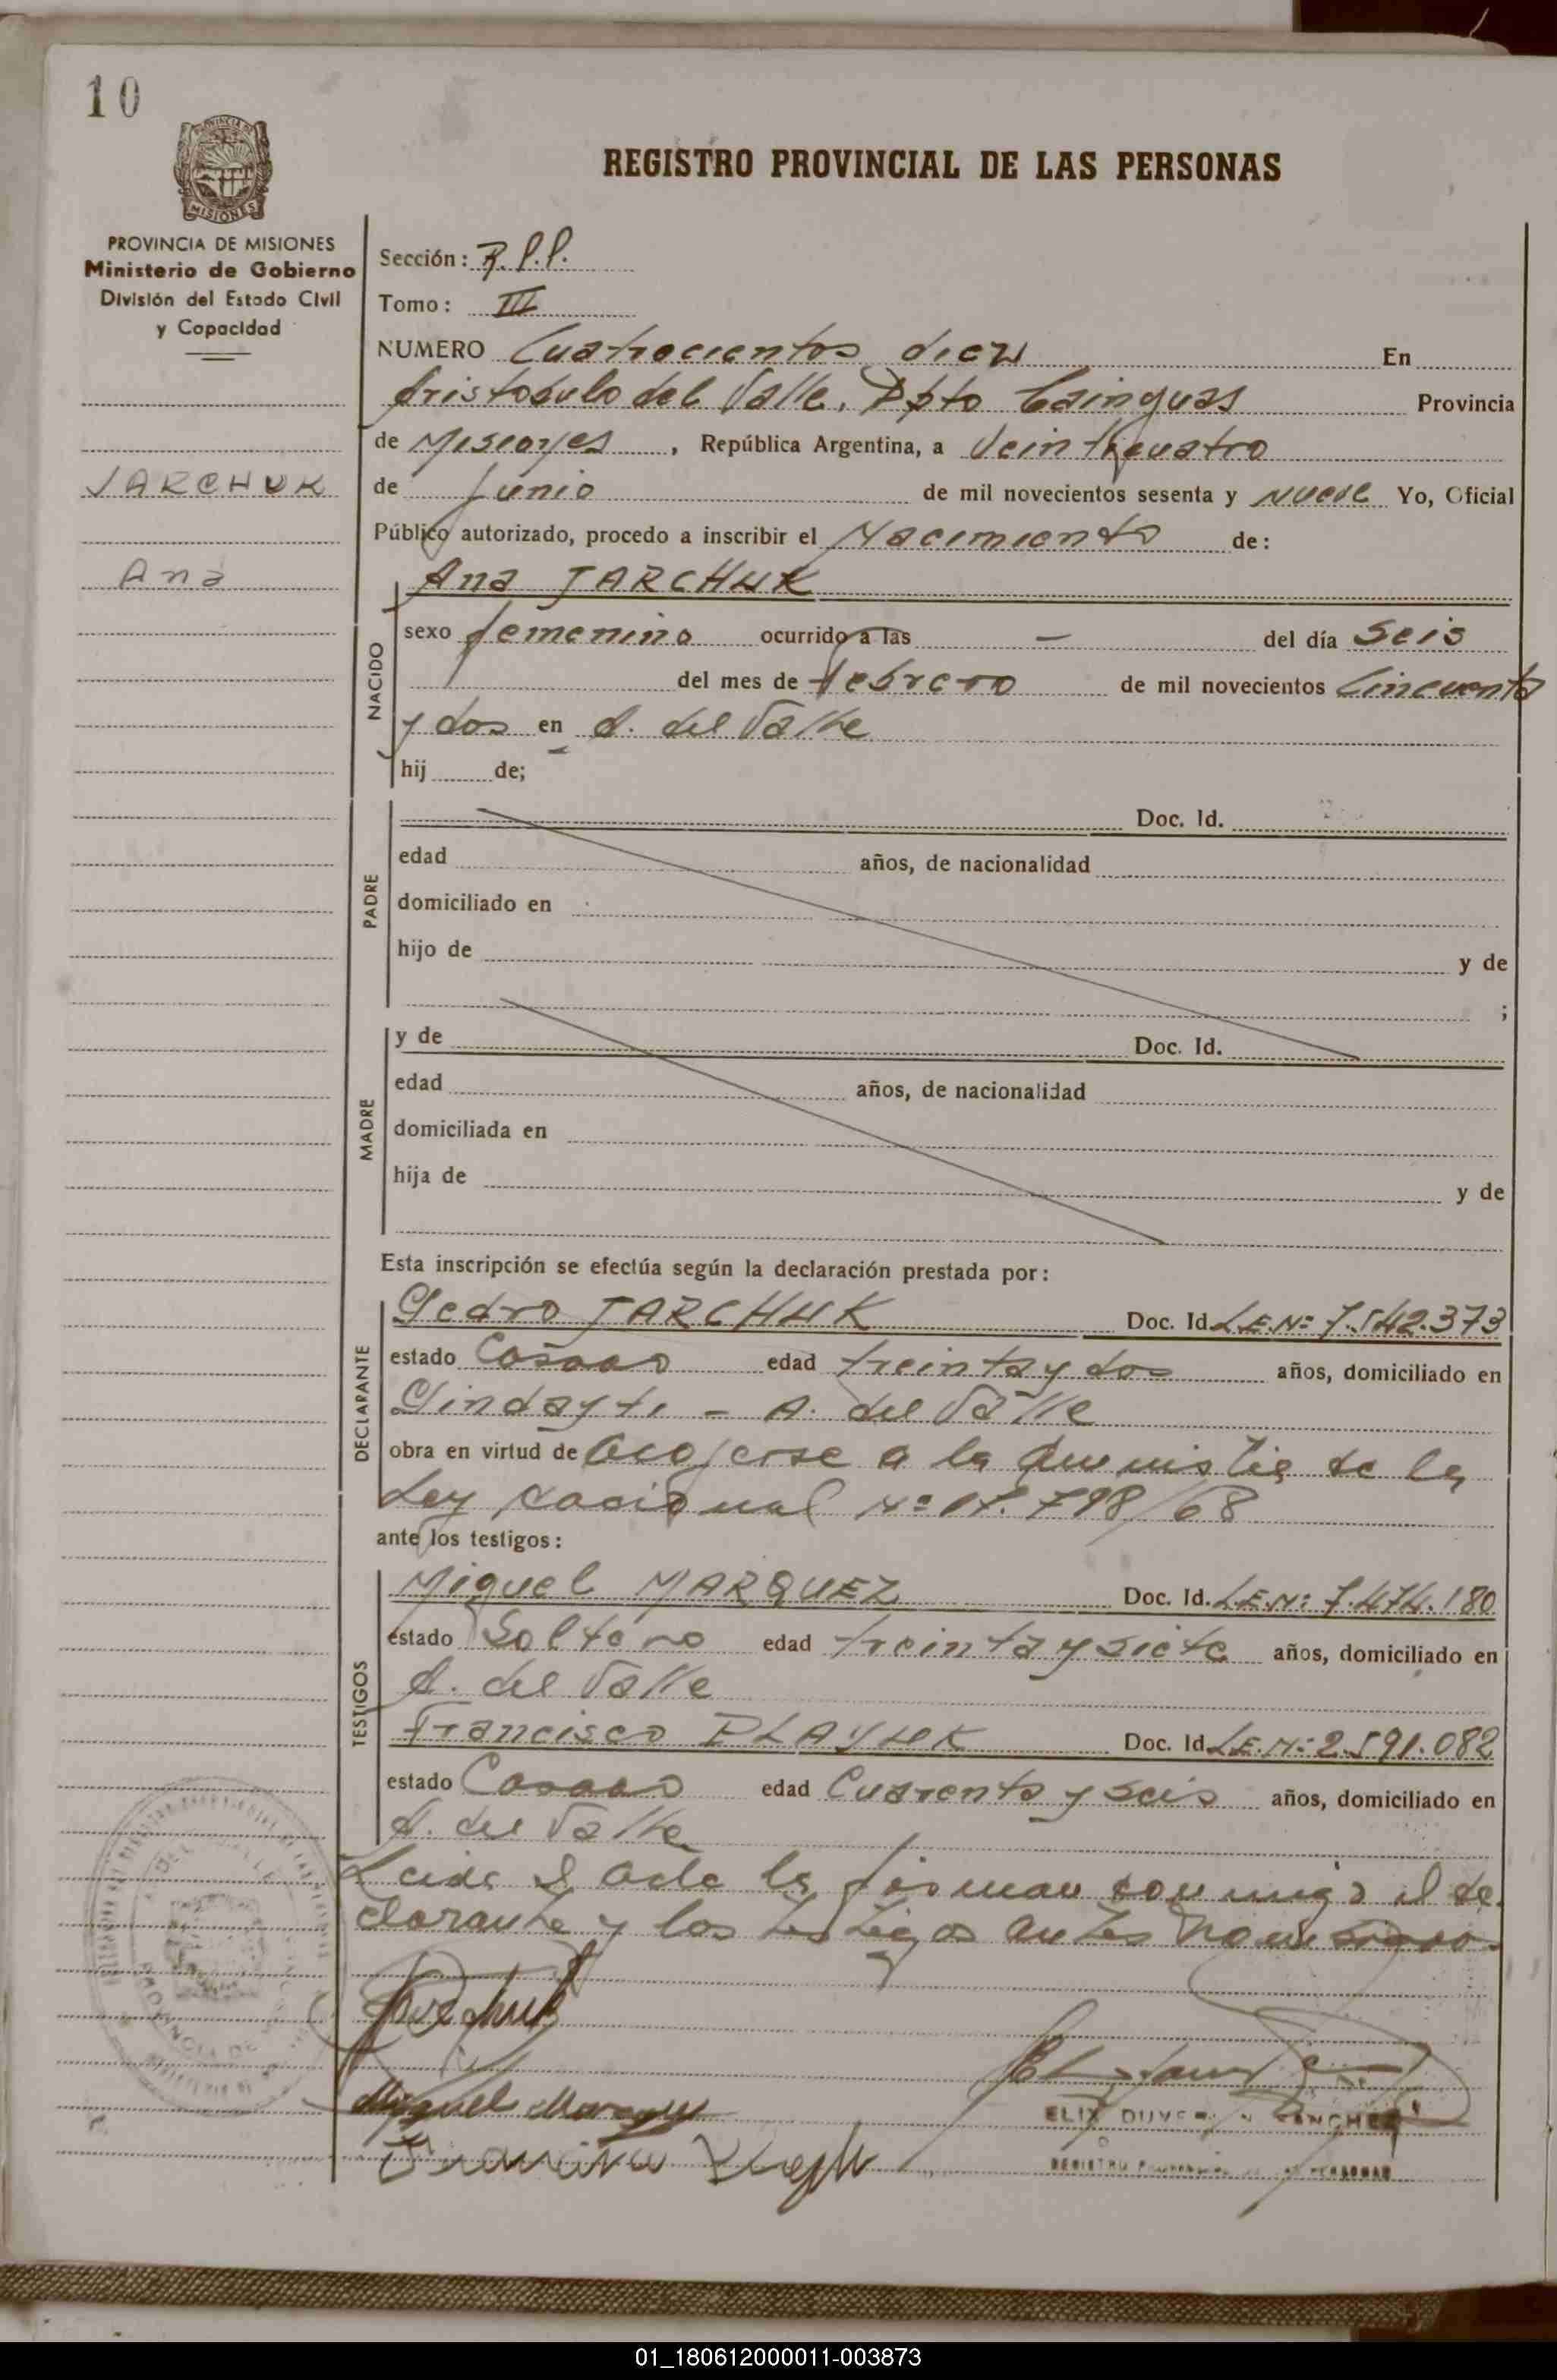 10
PROVINCIA DE MISIONES
Ministerio de Gobierno
División del Estado Civil
y Capacidad
JARCHUK
Ana
REGISTRO PROVINCIAL DE LAS PERSONAS
Sección: R.P.P.
Tomo: III
NUMERO Cuatrocientos diez En
Aristobulo del Valle, Dpto Cainguas Provincia
de Misiones, República Argentina, a Veinticuatro
de Junio de mil novecientos sesenta y nueve Yo, Oficial
Público autorizado, procedo a inscribir el Nacimiento de:
NACIDO
Ana JARCHUK
sexo femenino ocurrido a las — del día Seis
del mes de febrero de mil novecientos Cincuenta
y dos en A. del Valle
hij de;
PADRE
Doc. Id.
edad años, de nacionalidad
domiciliado en
hijo de y de
;
MADRE
y de Doc. Id.
edad años, de nacionalidad
domiciliada en
hija de y de
Esta inscripción se efectúa según la declaración prestada por:
DECLARANTE
Pedro JARCHUK Doc. Id. L.E.Nº 7.542.373
estado Casado edad treinta y dos años, domiciliado en
Pindayti - A. del Valle
obra en virtud de acogerse a la amnistia de la
Ley nacional Nº 17.798/68
ante los testigos:
TESTIGOS
Miguel MARQUEZ Doc. Id. L.E.Nº 7.474.180
estado Soltero edad treinta y siete años, domiciliado en
A. del Valle
Francisco PLAYUK Doc. Id. L.E.Nº 2.591.082
estado Casado edad Cuarenta y seis años, domiciliado en
A. del Valle
Leida el acta la firman conmigo el de-
clarante y los testigos antes
Miguel Marquez
REGISTRO PROVINCIAL DE LAS PERSONAS
01_180612000011-003873